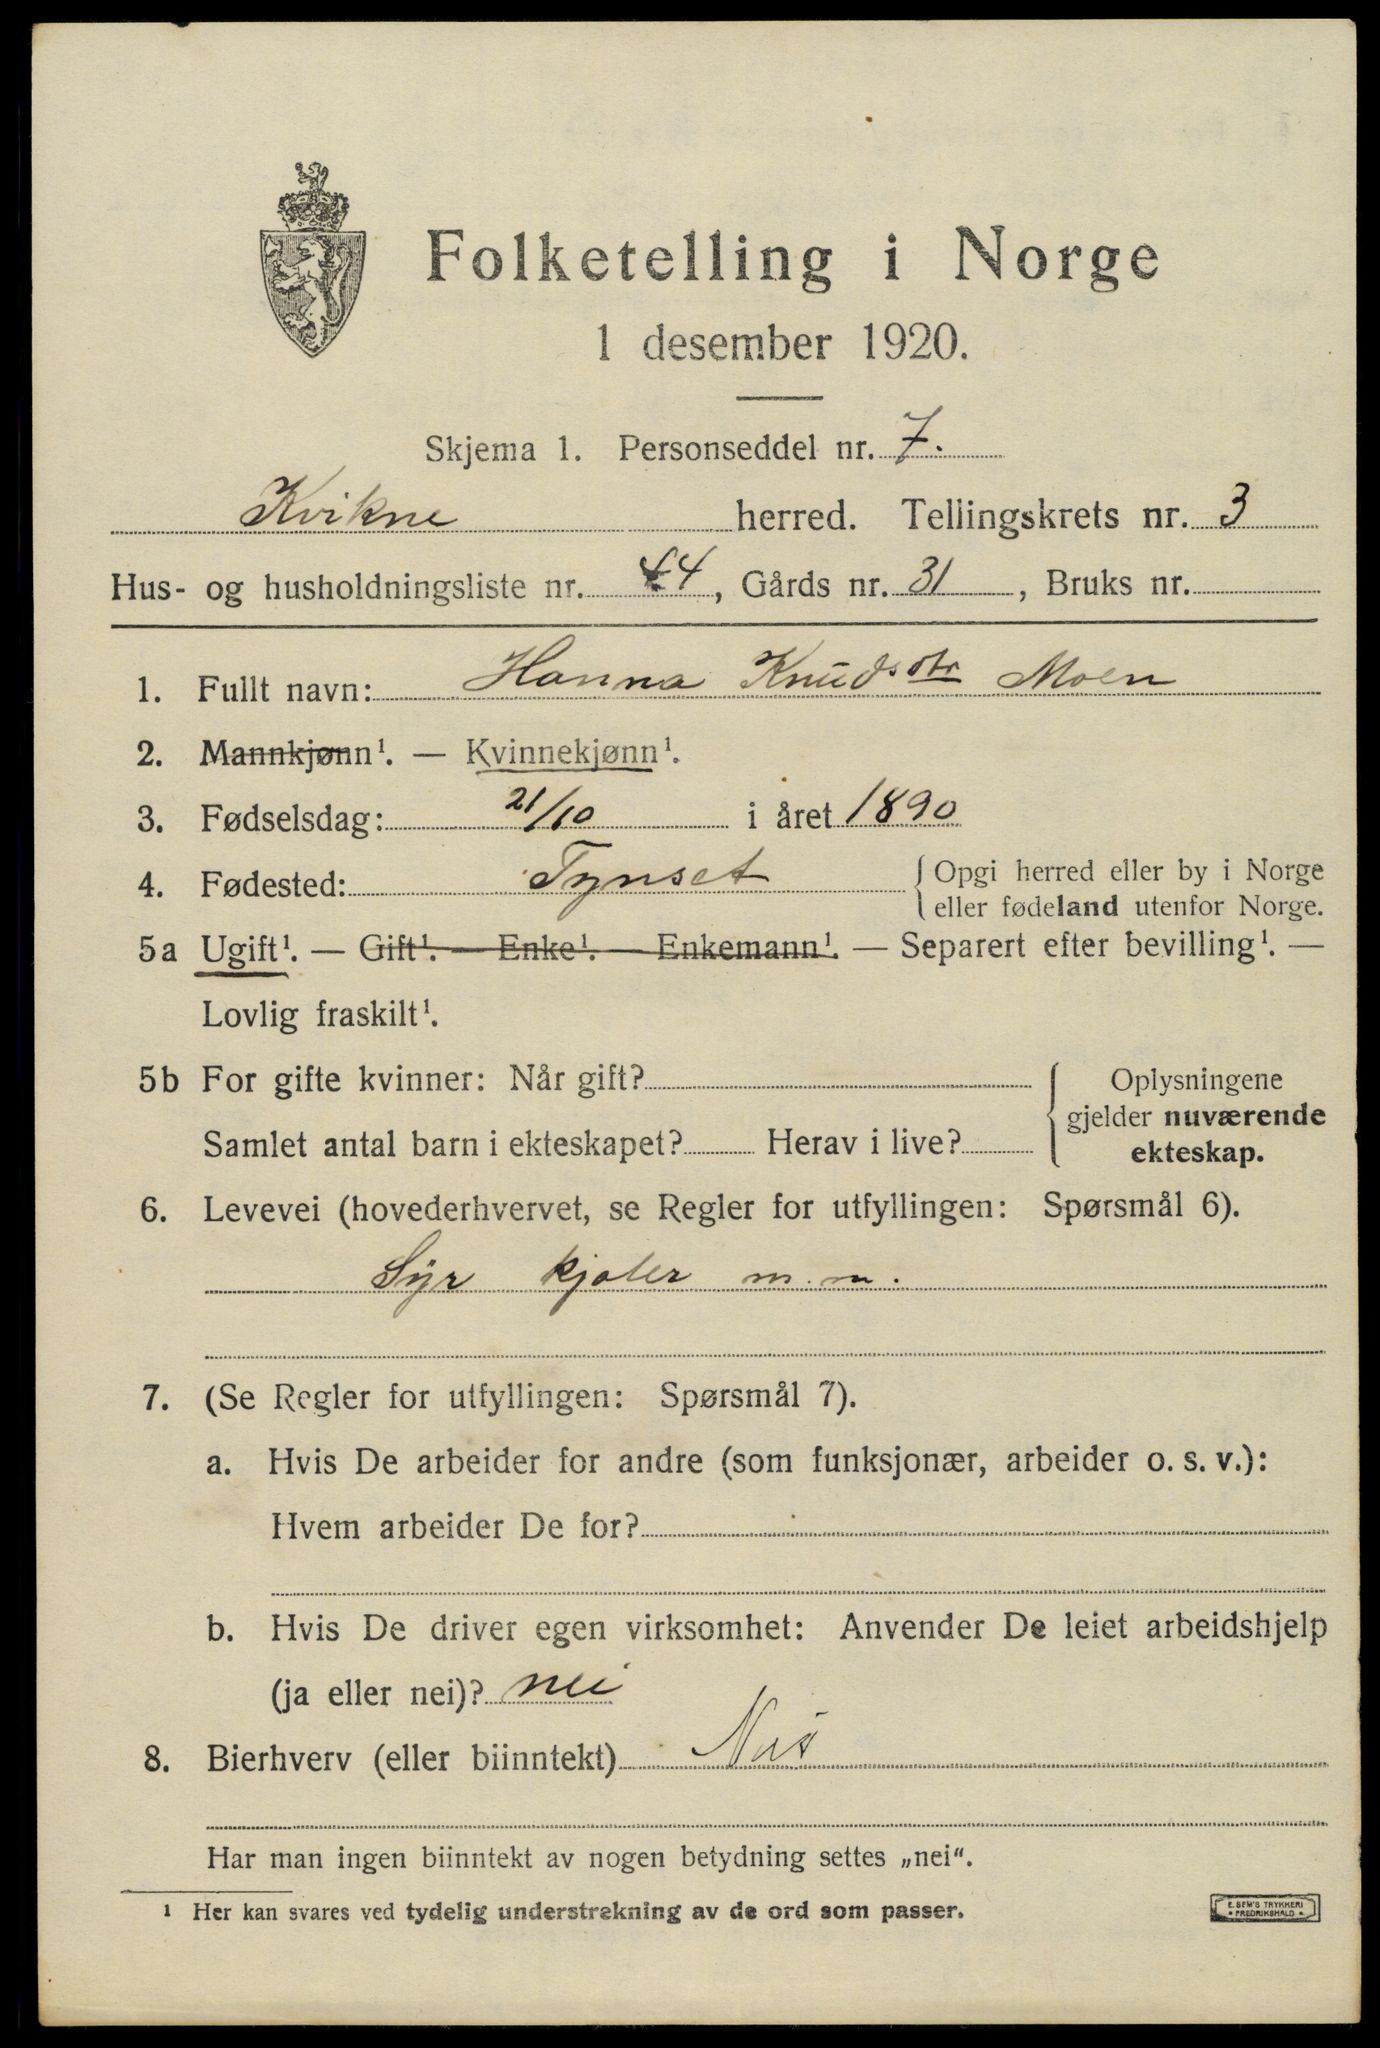 Folketelling i Norge
1 desember 1920.
Skjema 1. Personseddel nr. 7.
Kvikne herred. Tellingskrets nr. 3
Hus- og husholdningsliste nr. 44, Gårds nr. 31, Bruks nr.
1. Fullt navn: Hanna Knudsdtr Moen
2. Mannkjønn¹. — Kvinnekjønn¹.
3. Fødselsdag: 21/10 i året 1890
4. Fødested: Tynset { Opgi herred eller by i Norge
eller fødeland utenfor Norge.
5a Ugift¹. — Gift¹. — Enke¹. — Enkemann¹. — Separert efter bevilling¹. —
Lovlig fraskilt¹.
5b For gifte kvinner: Når gift? { Oplysningene
gjelder nuværende
Samlet antal barn i ekteskapet? Herav i live? ekteskap.
6. Levevei (hovederhvervet, se Regler for utfyllingen: Spørsmål 6).
Syr kjoler m.m.
7. (Se Regler for utfyllingen: Spørsmål 7).
a. Hvis De arbeider for andre (som funksjonær, arbeider o. s. v.):
Hvem arbeider De for?
b. Hvis De driver egen virksomhet: Anvender De leiet arbeidshjelp
(ja eller nei)? nei
8. Bierhverv (eller biinntekt) Nei
Har man ingen biinntekt av nogen betydning settes „nei".
¹ Her kan svares ved tydelig understrekning av de ord som passer.
E. SEM'S TRYKKERI
• FREDRIKSHALD •